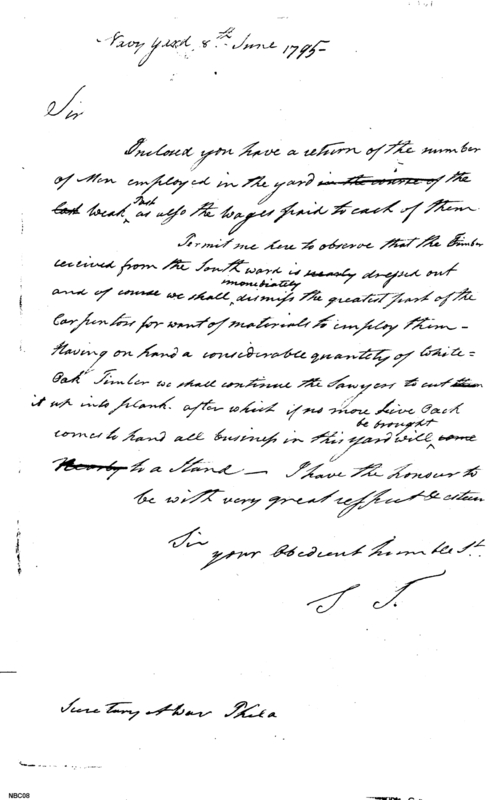 Navy Yard 8th June 1795-
Sir
Inclosed you have a return of the number
of Men employed in the yard in the course of the
last weak past as also the wages paid to each of them
Permit me here to observe that the Timber
received from the Southward is nearly dressed out
and of course we shall immediately dismiss the greatest part of the
Carpenters for want of materials to employ them -
Having on hand a considerable quantety of White=
Oak Timber we shall continue the Sawyers to cut them
it up into plank. after which if no more Live Oack
comes to hand all business in this Yard will be brought come
Nearly to a Stand - I have the honour to
be with very great respect & esteem
Sir
your Obedient humble St.
S T.
Secretary at War Phila
NBC08